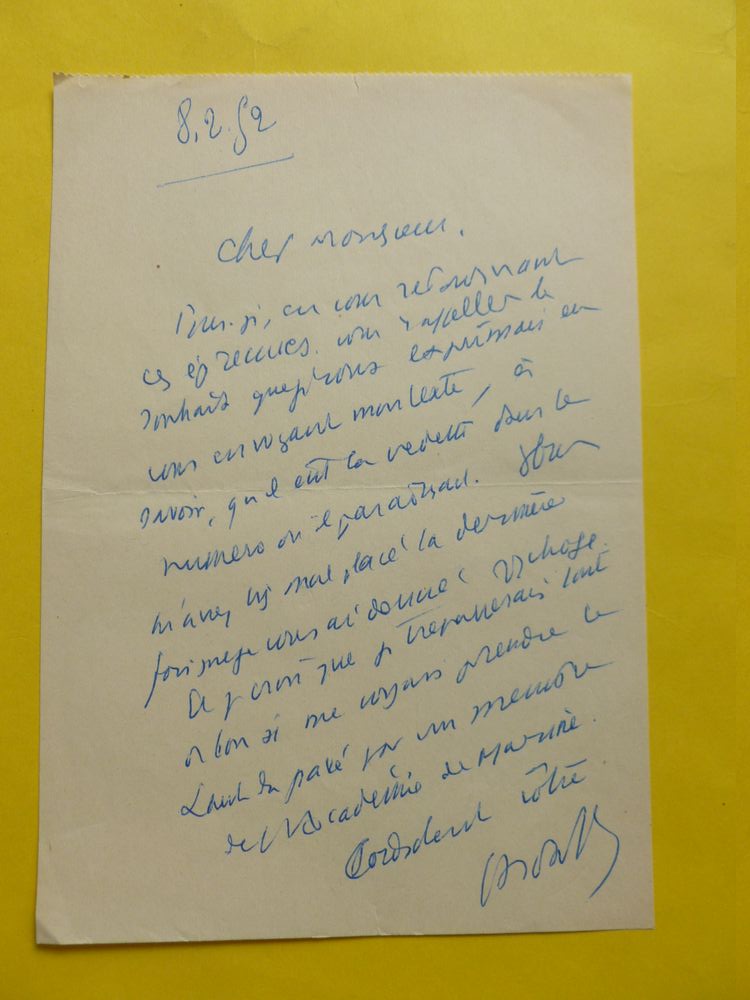 8.2.52
Cher monsieur,
Puis-je, en vous retournant
ces épreuves vous rappeler le
souhait que je vous exprimais en
vous envoyant mon texte, à
savoir, qu'il eût la vedette dans le
numéro où il paraîtrait. Vous
m'avez mal placé la dernière
fois que je vous ai donné chose.
Et je crois que je trépasserais tout
de bon si me voyais prendre le
haut du pavé par un membre
de l'Académie de Marine.
Cordialement vôtre